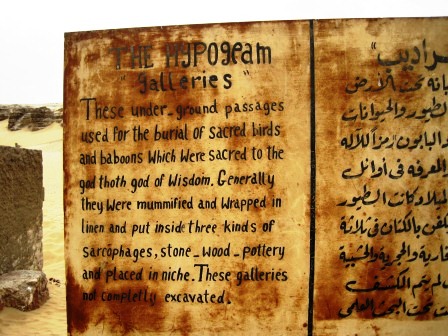 THE HYPOGEAM
"galleries"
These under-ground passages
used for the burial of sacred birds
and baboons which were sacred to the
god thoth god of Wisdom. Generally
They were mummified and wrapped in
linen and put inside three kinds of
sarcophages, stone_wood_pottery
and placed in niche. These galleries
not completly excavated.
سراديب"
تحت الأرض
والحيوانات
والبابون الرمز للآله
والمعرفه فى أوائل
الطيور
بالكتان فى ثلاثة
والحجرية والخشبية
يتم الكشف
تحت البحث العلمى